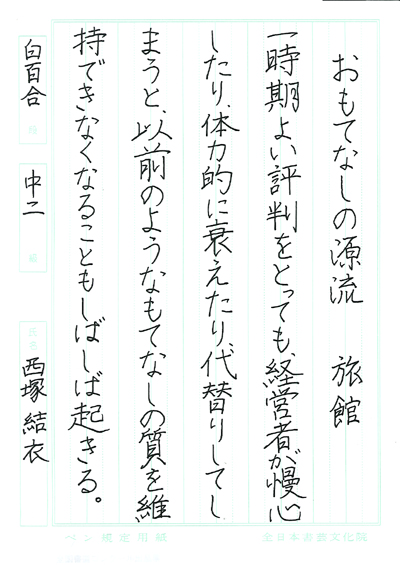 おもてなしの源流　旅館
一時期よい評判をとっても、経営者が慢心
したり、体力的に衰えたり、代替りしてし
まうと、以前のようなもてなしの質を維
持できなくなることもしばしば起きる。
白百合 中二 氏名 西塚結衣
ペン検定用紙
全日本書芸文化院